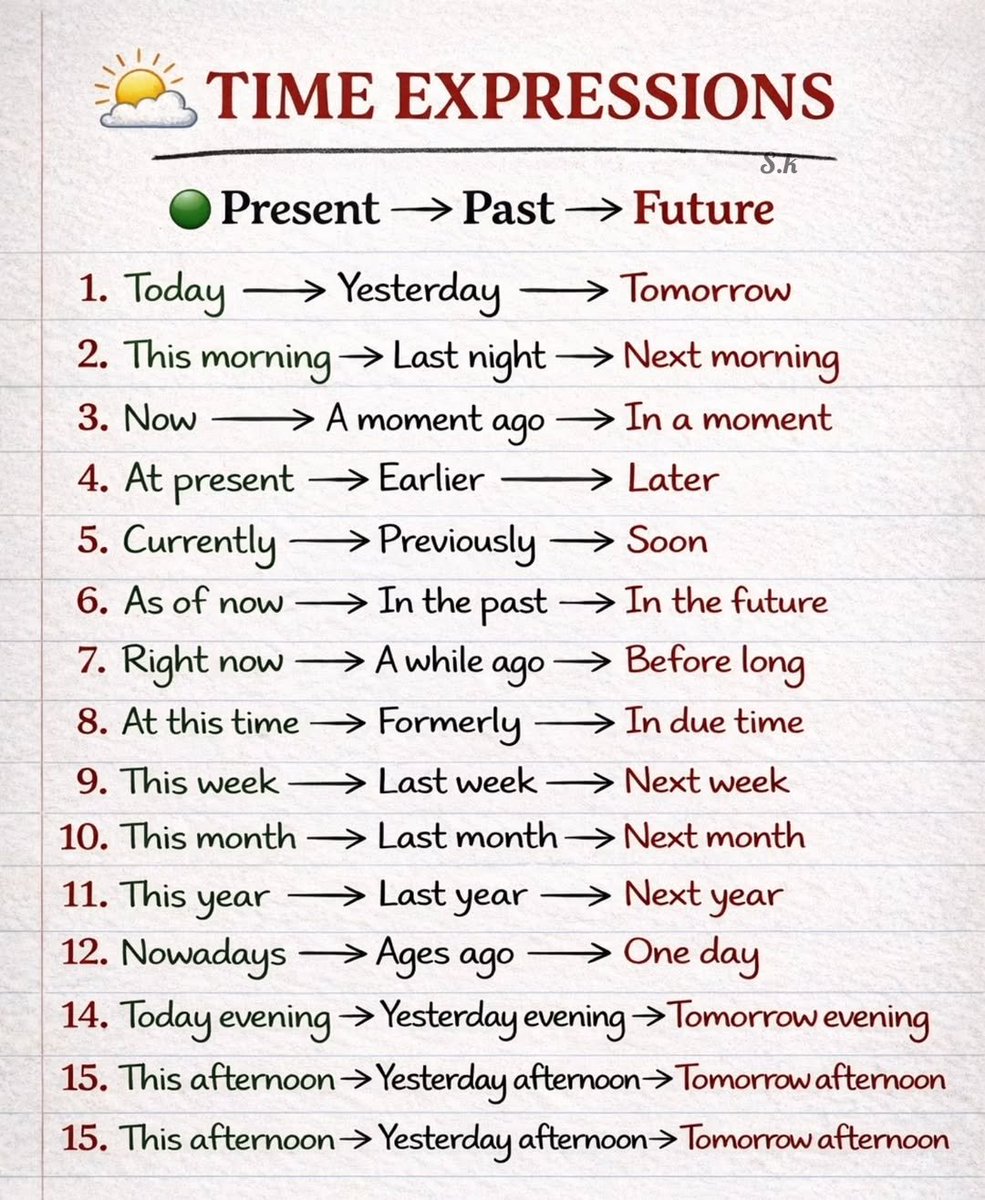 TIME EXPRESSIONS
S.K
Present → Past → Future
1. Today → Yesterday → Tomorrow
2. This morning → Last night → Next morning
3. Now → A moment ago → In a moment
4. At present → Earlier → Later
5. Currently → Previously → Soon
6. As of now → In the past → In the future
7. Right now → A while ago → Before long
8. At this time → Formerly → In due time
9. This week → Last week → Next week
10. This month → Last month → Next month
11. This year → Last year → Next year
12. Nowadays → Ages ago → One day
14. Today evening → Yesterday evening → Tomorrow evening
15. This afternoon → Yesterday afternoon → Tomorrow afternoon
15. This afternoon → Yesterday afternoon → Tomorrow afternoon